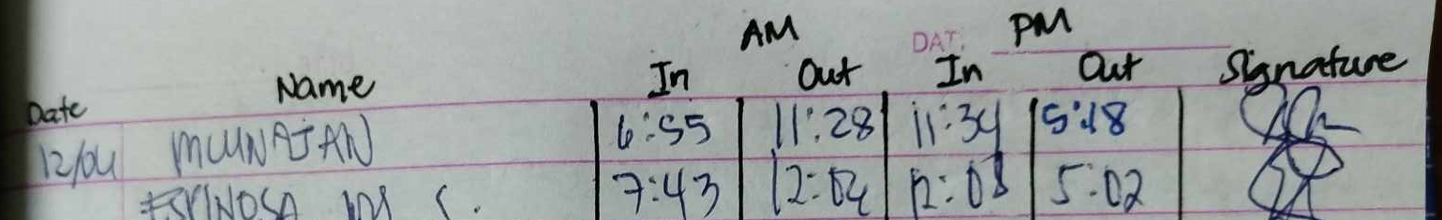 AM DAT. PM
Date Name In Out In Out Signature
12/04 MUUNAJAN 6:55 11:28 11:34 5:18
ESPINOSA 7:43 12:02 12:03 5:02